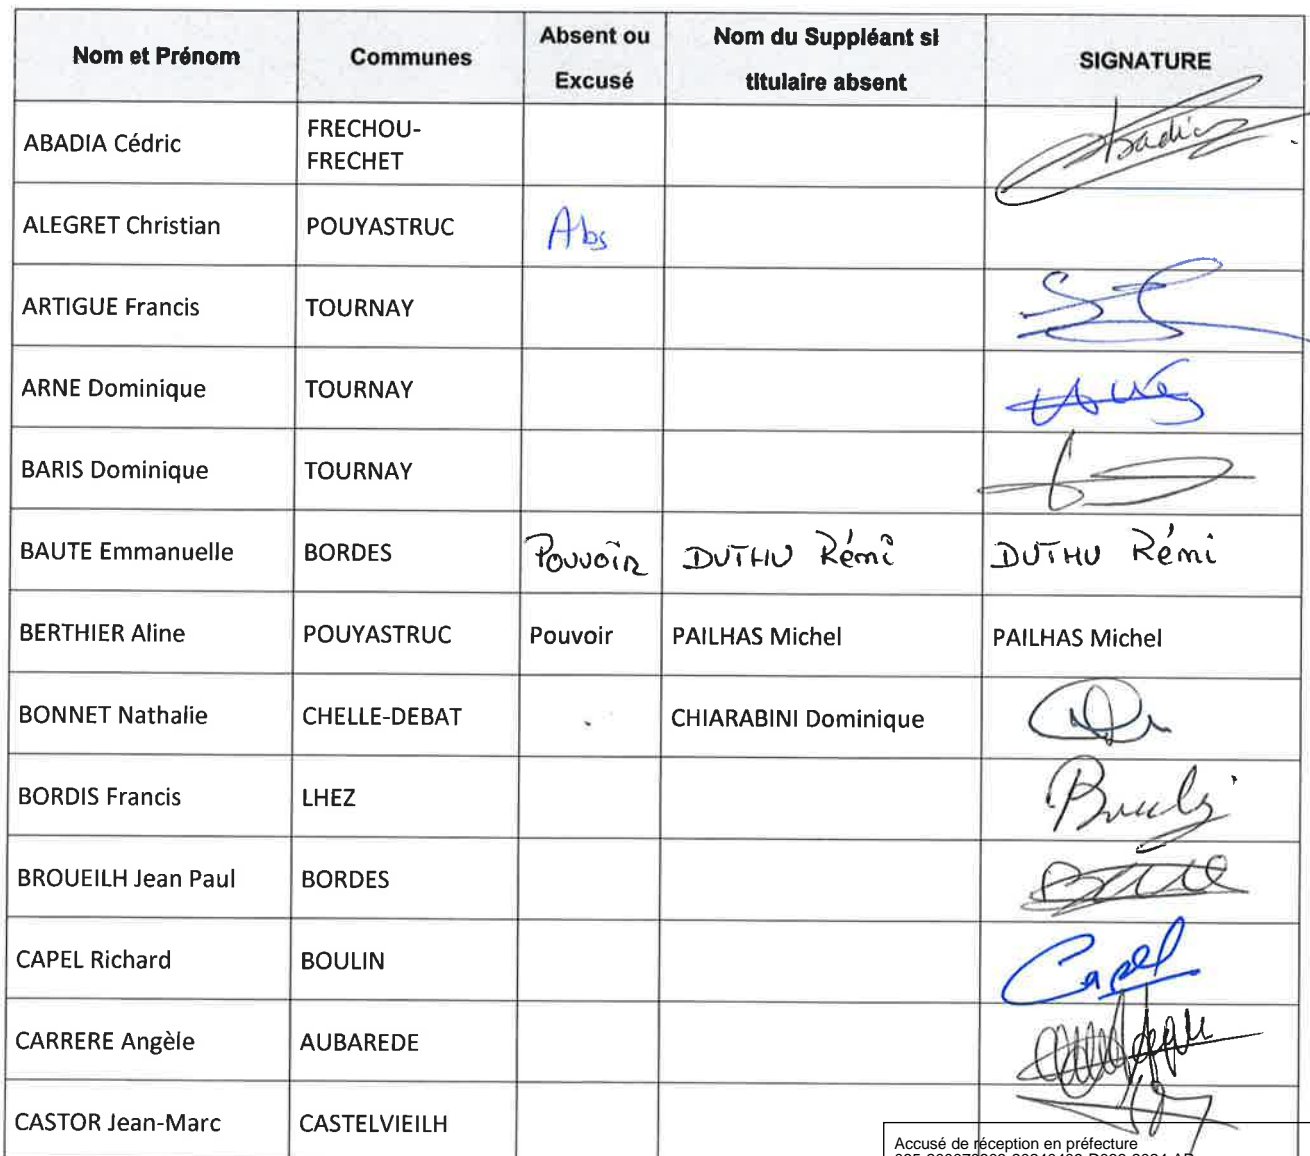 Nom et Prénom Communes Absent ou Excusé Nom du Suppléant si titulaire absent SIGNATURE
ABADIA Cédric FRECHOU-FRECHET Abadia
ALEGRET Christian POUYASTRUC Abs
ARTIGUE Francis TOURNAY
ARNE Dominique TOURNAY
BARIS Dominique TOURNAY
BAUTE Emmanuelle BORDES Pouvoir DUTHU Rémi DUTHU Rémi
BERTHIER Aline POUYASTRUC Pouvoir PAILHAS Michel PAILHAS Michel
BONNET Nathalie CHELLE-DEBAT CHIARABINI Dominique
BORDIS Francis LHEZ
BROUEILH Jean Paul BORDES
CAPEL Richard BOULIN Capel
CARRERE Angèle AUBAREDE
CASTOR Jean-Marc CASTELVIEILH
Accusé de réception en préfecture